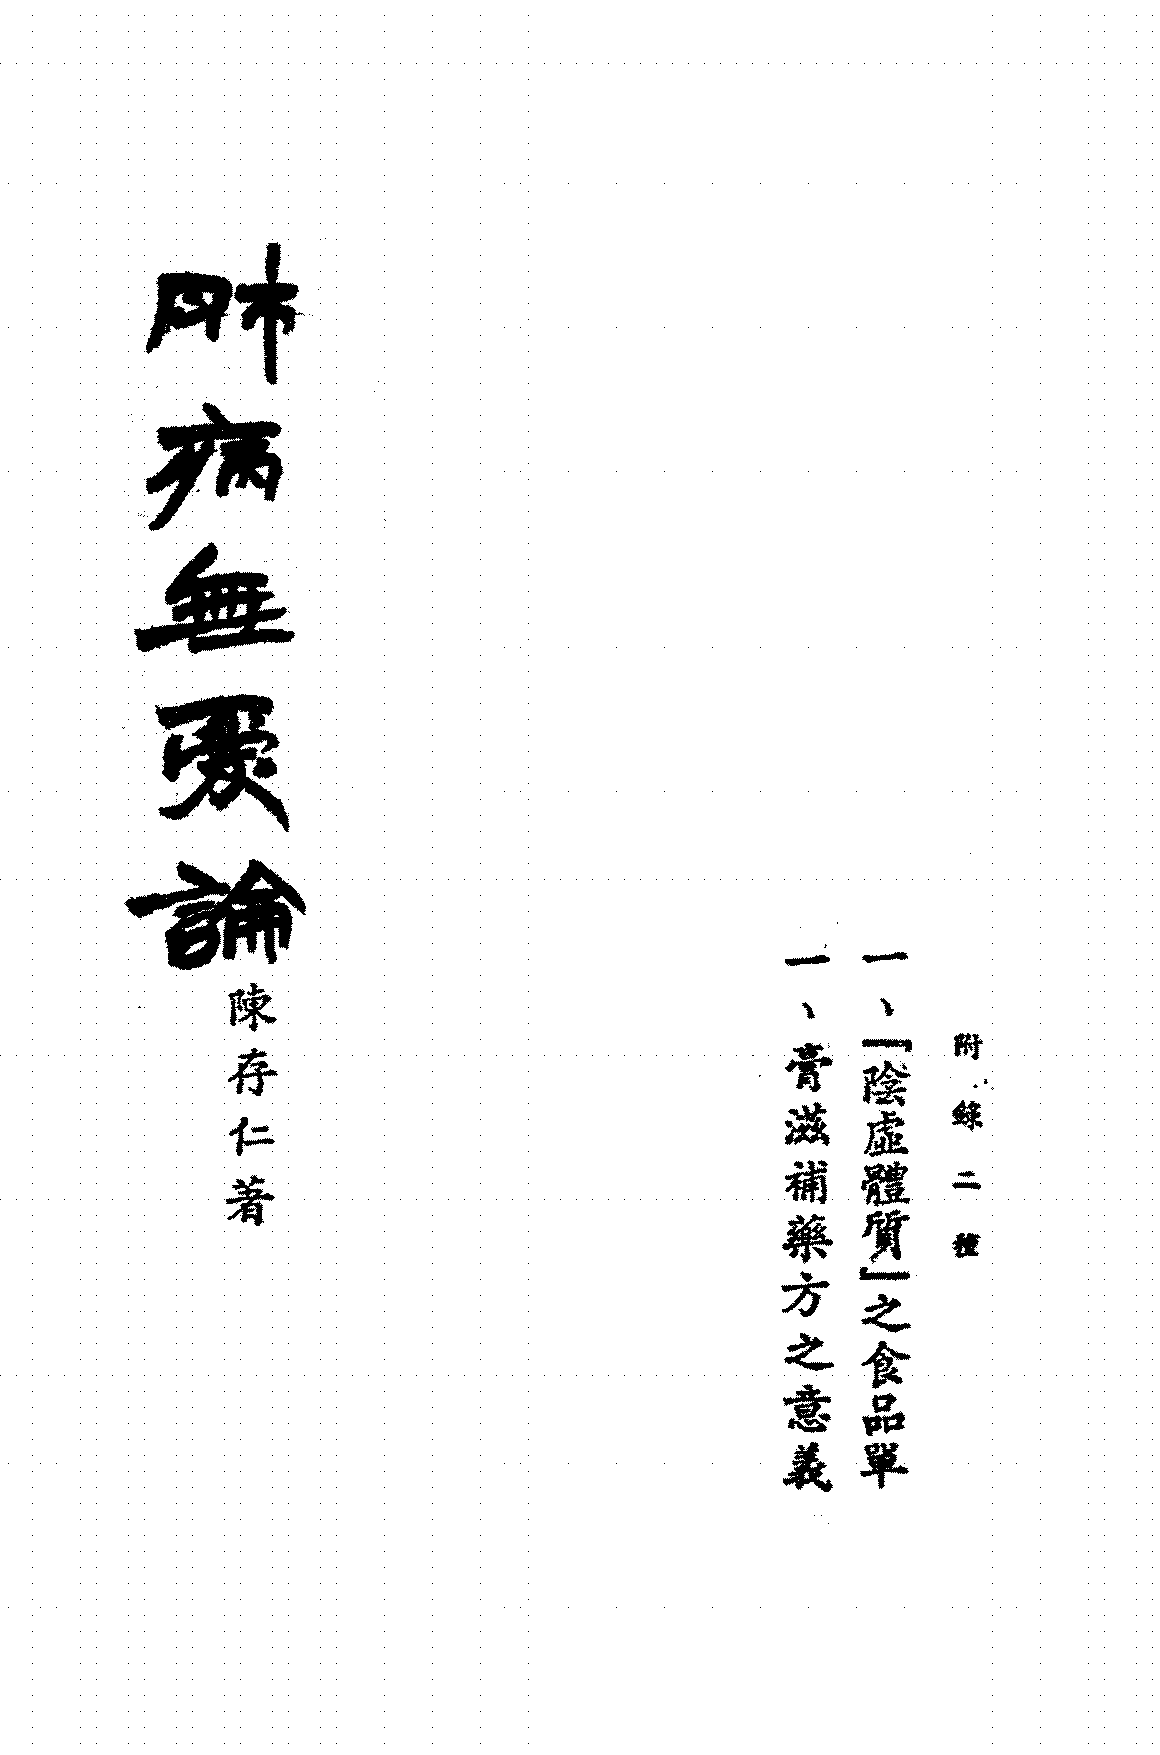 附錄二種
一、「陰虛體質」之食品單
一、膏滋補藥方之意義
肺病無憂論
陳存仁著